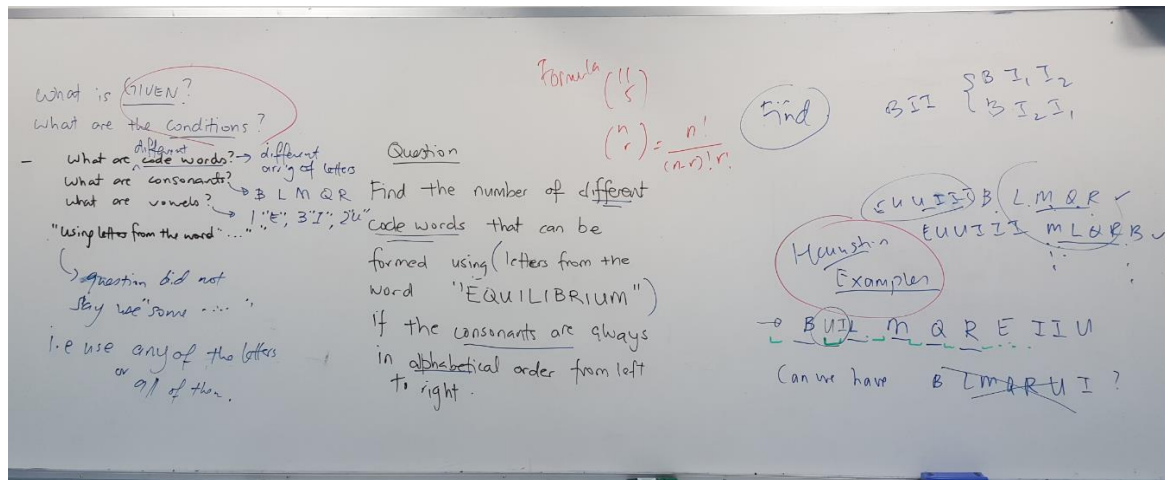 What is GIVEN?
What are the conditions?
different
- What are code words? → different
arr'g of letters
What are consonants?
→ B L M Q R
What are vowels?
→ 1 "E", 3 "I", 2 "U"
"Using letters from the word "..."
↳ question did not
say use "some ..... "
i.e use any of the letters
or
all of them.
Question
Find the number of different
code words that can be
formed using (letters from the
word "EQUILIBRIUM")
if the consonants are always
in alphabetical order from left
to right.
Formula (11
5)
(n
r) = n!
(n-r)! r!
Find
BII { B I₁ I₂
B I₂ I₁
E U U I I I B L M Q R ✓
E U U I I I M L Q R B ✓
Examples
→ B U I L M Q R E I I U
Can we have B L M Q R U I ?